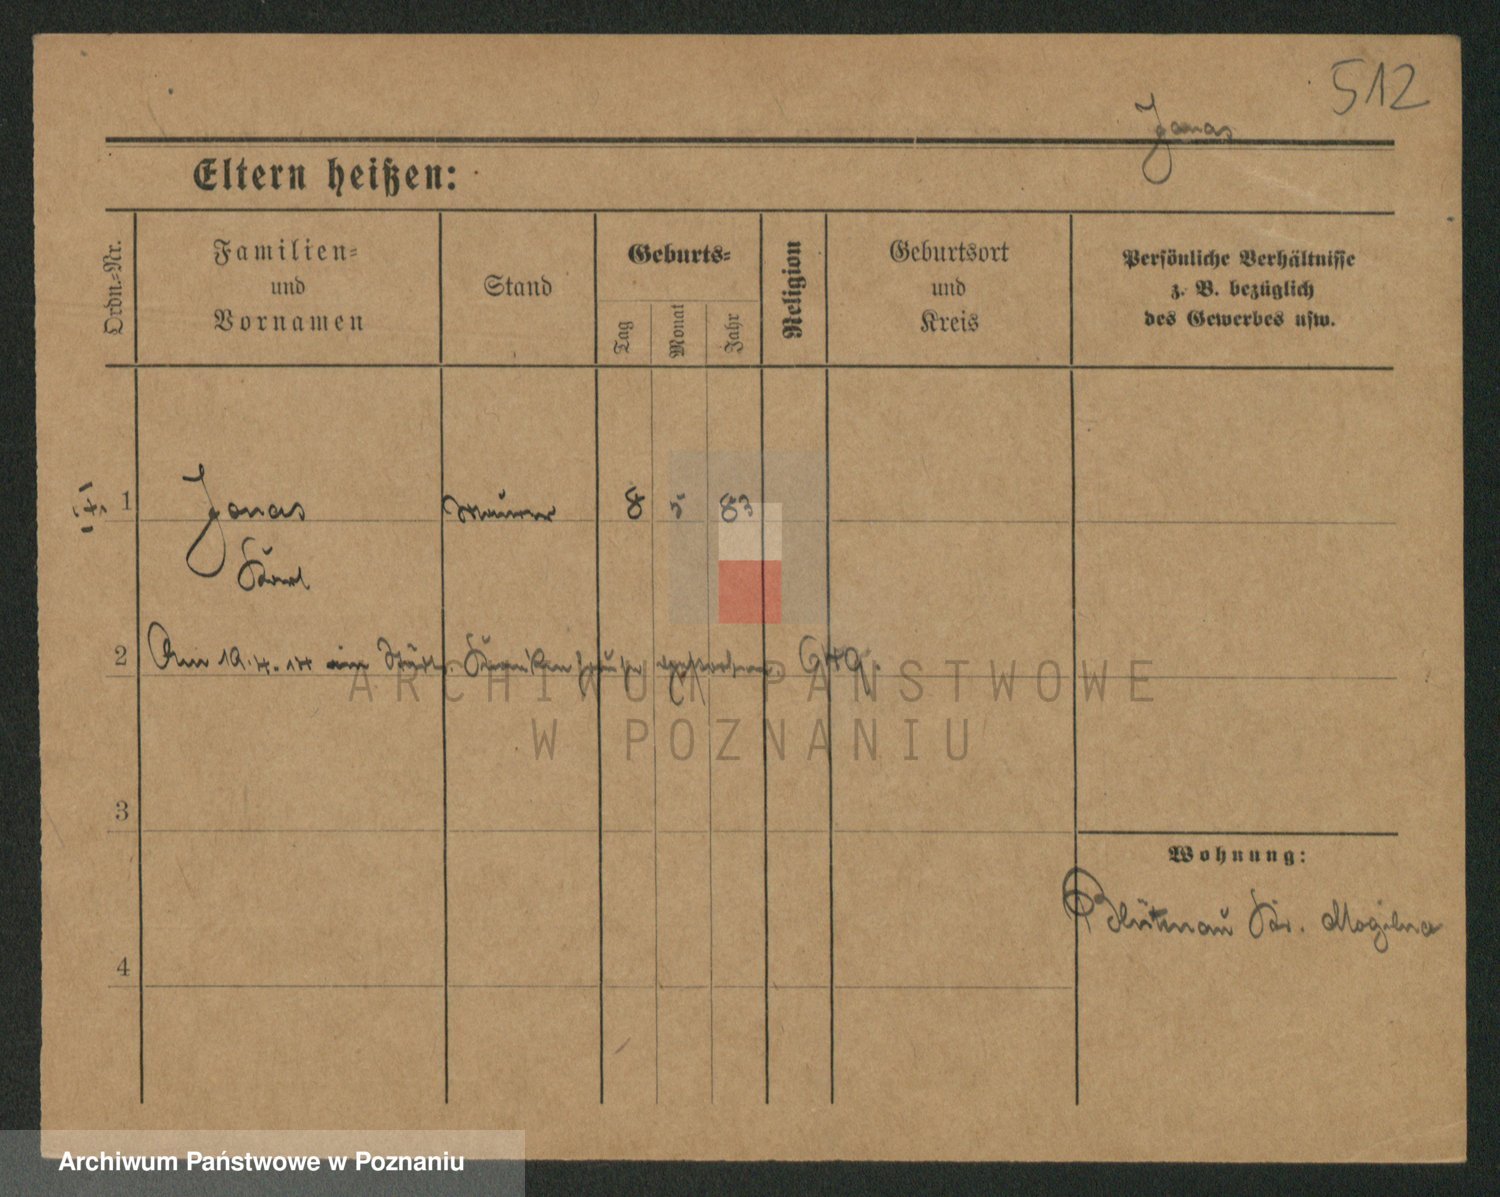 512
Jonas
Eltern heißen:
Ordn.-Nr.
Familien-
und
Vornamen
Stand
Geburts-
Tag
Monat
Jahr
Religion
Geburtsort
und
Kreis
Persönliche Verhältnisse
z. B. bezüglich
des Gewerbes usw.
1 Jonas Maurer 8 5 83
Karl
2 Am 19.4.14 im Städt. Krankenhause gestorben.
ARCHIWUM PAŃSTWOWE
W POZNANIU
3
Wohnung:
Kr. Mogilno
4
Archiwum Państwowe w Poznaniu